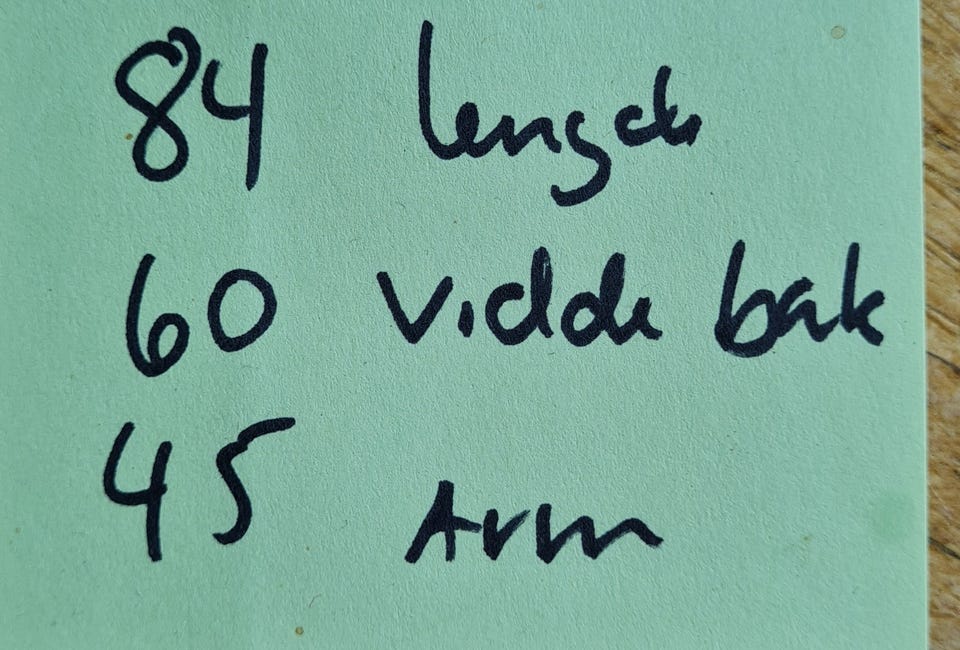 84 lengde
60 vidde bak
45 Arm